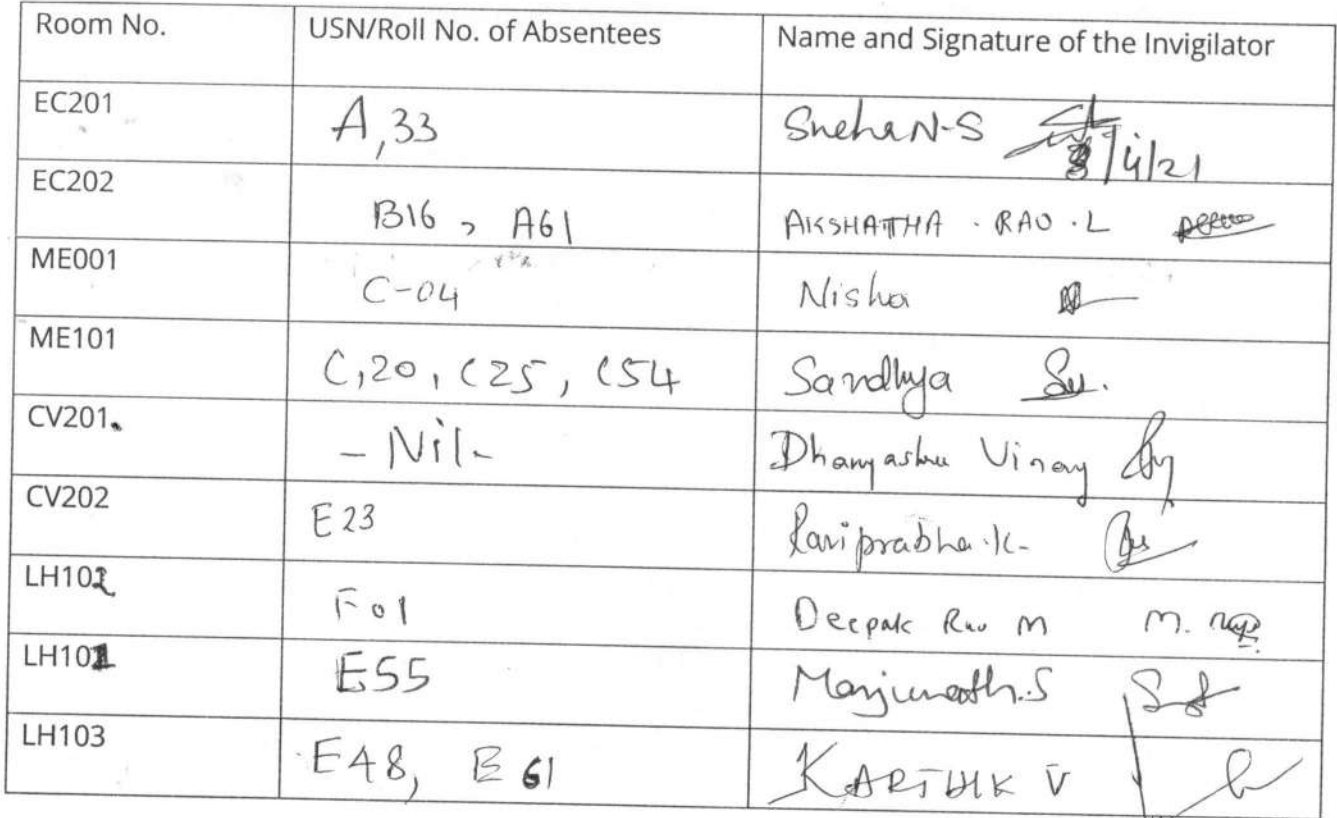 Room No. USN/Roll No. of Absentees Name and Signature of the Invigilator
EC201 A,33 Sneha N-S 8/4/21
EC202 B16, A61 AKSHATHA . RAO . L
ME001 C-04 Nisha
ME101 C,20, C25, C54 Sandhya
CV201. - Nil - Dhanyashree Vinay
CV202 E23 Raviprabha.K-
LH102 F01 Deepak Rao M
LH101 E55 Manjunath.S
LH103 E48, E61 KARTHIK V